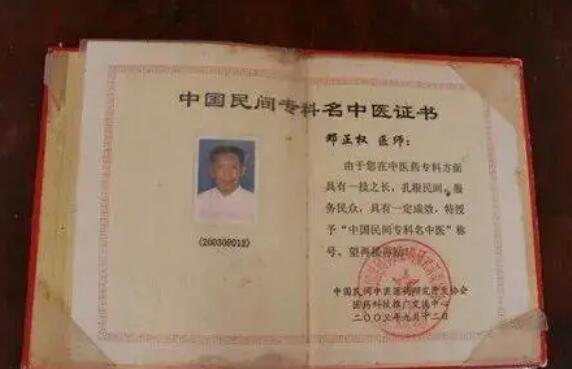 中国民间专科名中医证书
郑正权 医师：
由于您在中医药专科方面
具有一技之长，扎根民间，服
务民众，具有一定成效，特授
予“中国民间专科名中医”称
号、望再接再励！
(200309012)
中国民间中医医药研究开发协会
医药科技推广交流中心
二〇〇三年九月十二日